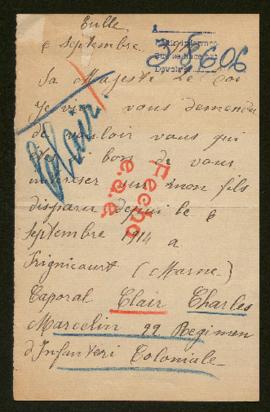 Tulle
6 Septembre
27606
Sa Majesté Le Roi
Je viens vous demender
de vouloir vous qui
bon de vous
interesser sur mon fils
disparu depui le 6
Septembre 1914 a
Frignicourt (Marne)
Caporal Clair Charles
Marcelin 22 Regimen
d'Infanteri Coloniale
Clair
Fecha